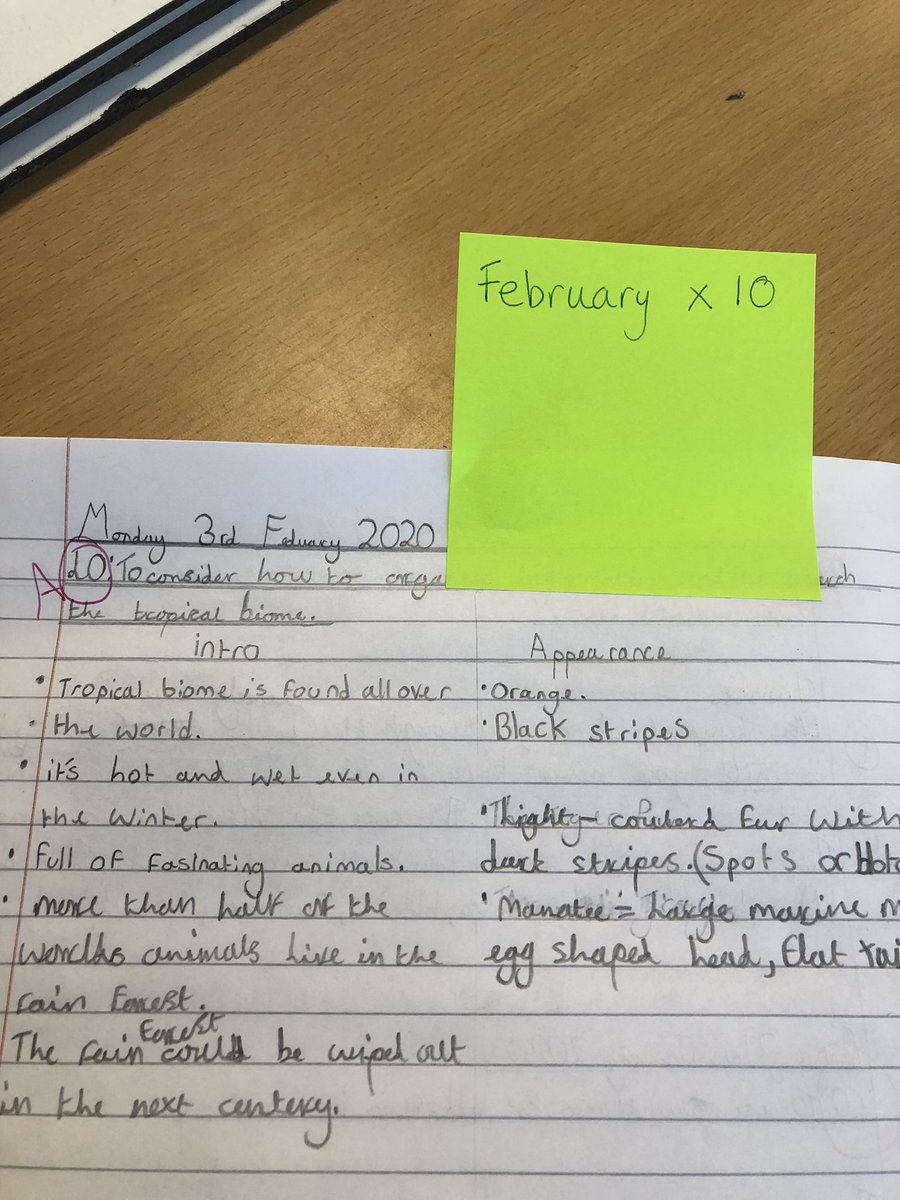 February x 10
Monday 3rd Feduary 2020
A LO: To consider how to orga
the tropical biome.
intro
• Tropical biome is found all over
• the world.
• it's hot and wet even in
the winter.
• full of fasinating animals.
• more than half of the
worlds animals live in the
rain forest.
The rain forest could be wiped out
in the next centery.
Appearance
• Orange.
• Black stripes
fur with
dark stripes. (Spots or
• Manatee = Large marine m
egg shaped head, flat tai